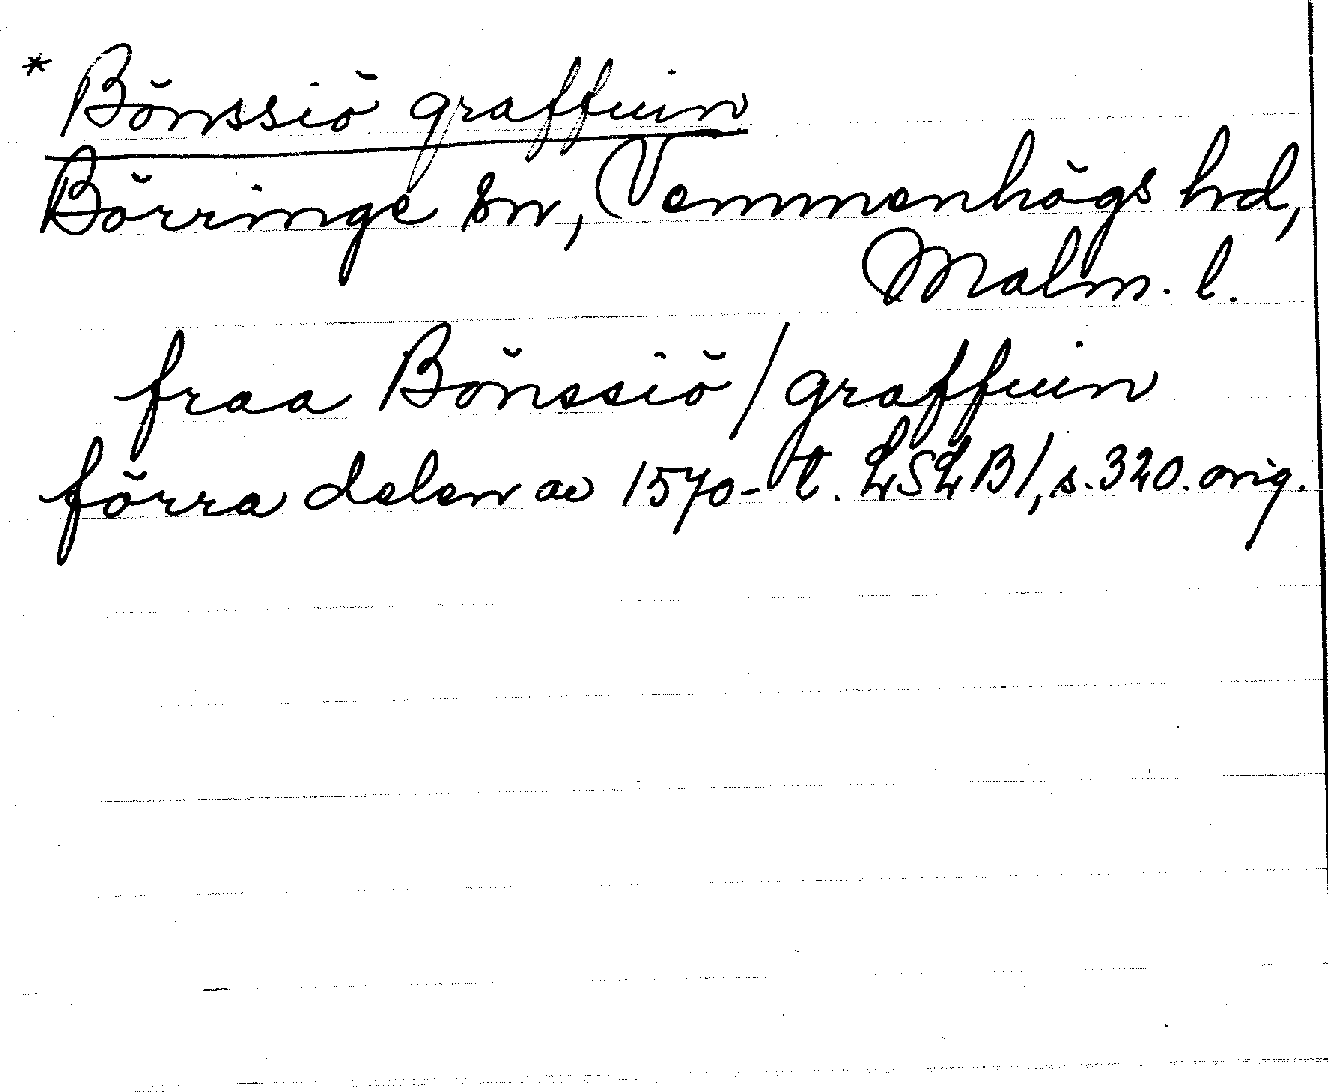 * Bönssiö graffuin
Börringe sn, Vemmenhögs hd,
Malm. l.
fraa Bönssiö / graffuin
förra delen av 1570-t. LSLB1, s. 320. orig.